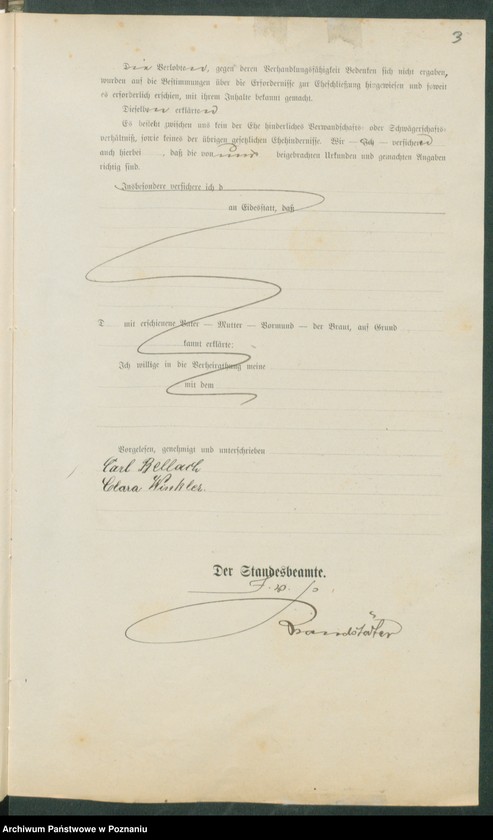 3
Die Verlobten, gegen deren Verhandlungsfähigkeit Bedenken sich nicht ergaben,
wurden auf die Bestimmungen über die Erfordernisse zur Eheschließung hingewiesen und soweit
es erforderlich erschien, mit ihrem Inhalte bekannt gemacht.
Dieselben erklärten
Es besteht zwischen uns kein der Ehe hinderliches Verwandschafts- oder Schwägerschafts-
verhältniß, sowie keines der übrigen gesetzlichen Ehehindernisse. Wir — Ich — versichern
auch hierbei, daß die von uns beigebrachten Urkunden und gemachten Angaben
richtig sind.
Insbesondere versichere ich d
an Eidesstatt, daß
D mit erschienene Vater — Mutter — Vormund — der Braut, auf Grund
kannt erklärte:
Ich willige in die Verheirathung meine
mit dem
Vorgelesen, genehmigt und unterschrieben
Carl Bellach
Clara Winkler.
Der Standesbeamte.
Brandstäter
Archiwum Państwowe w Poznaniu